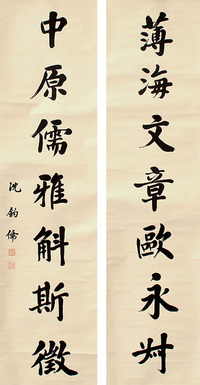 薄海文章歐永叔
中原儒雅斛斯徵
沈鈞儒